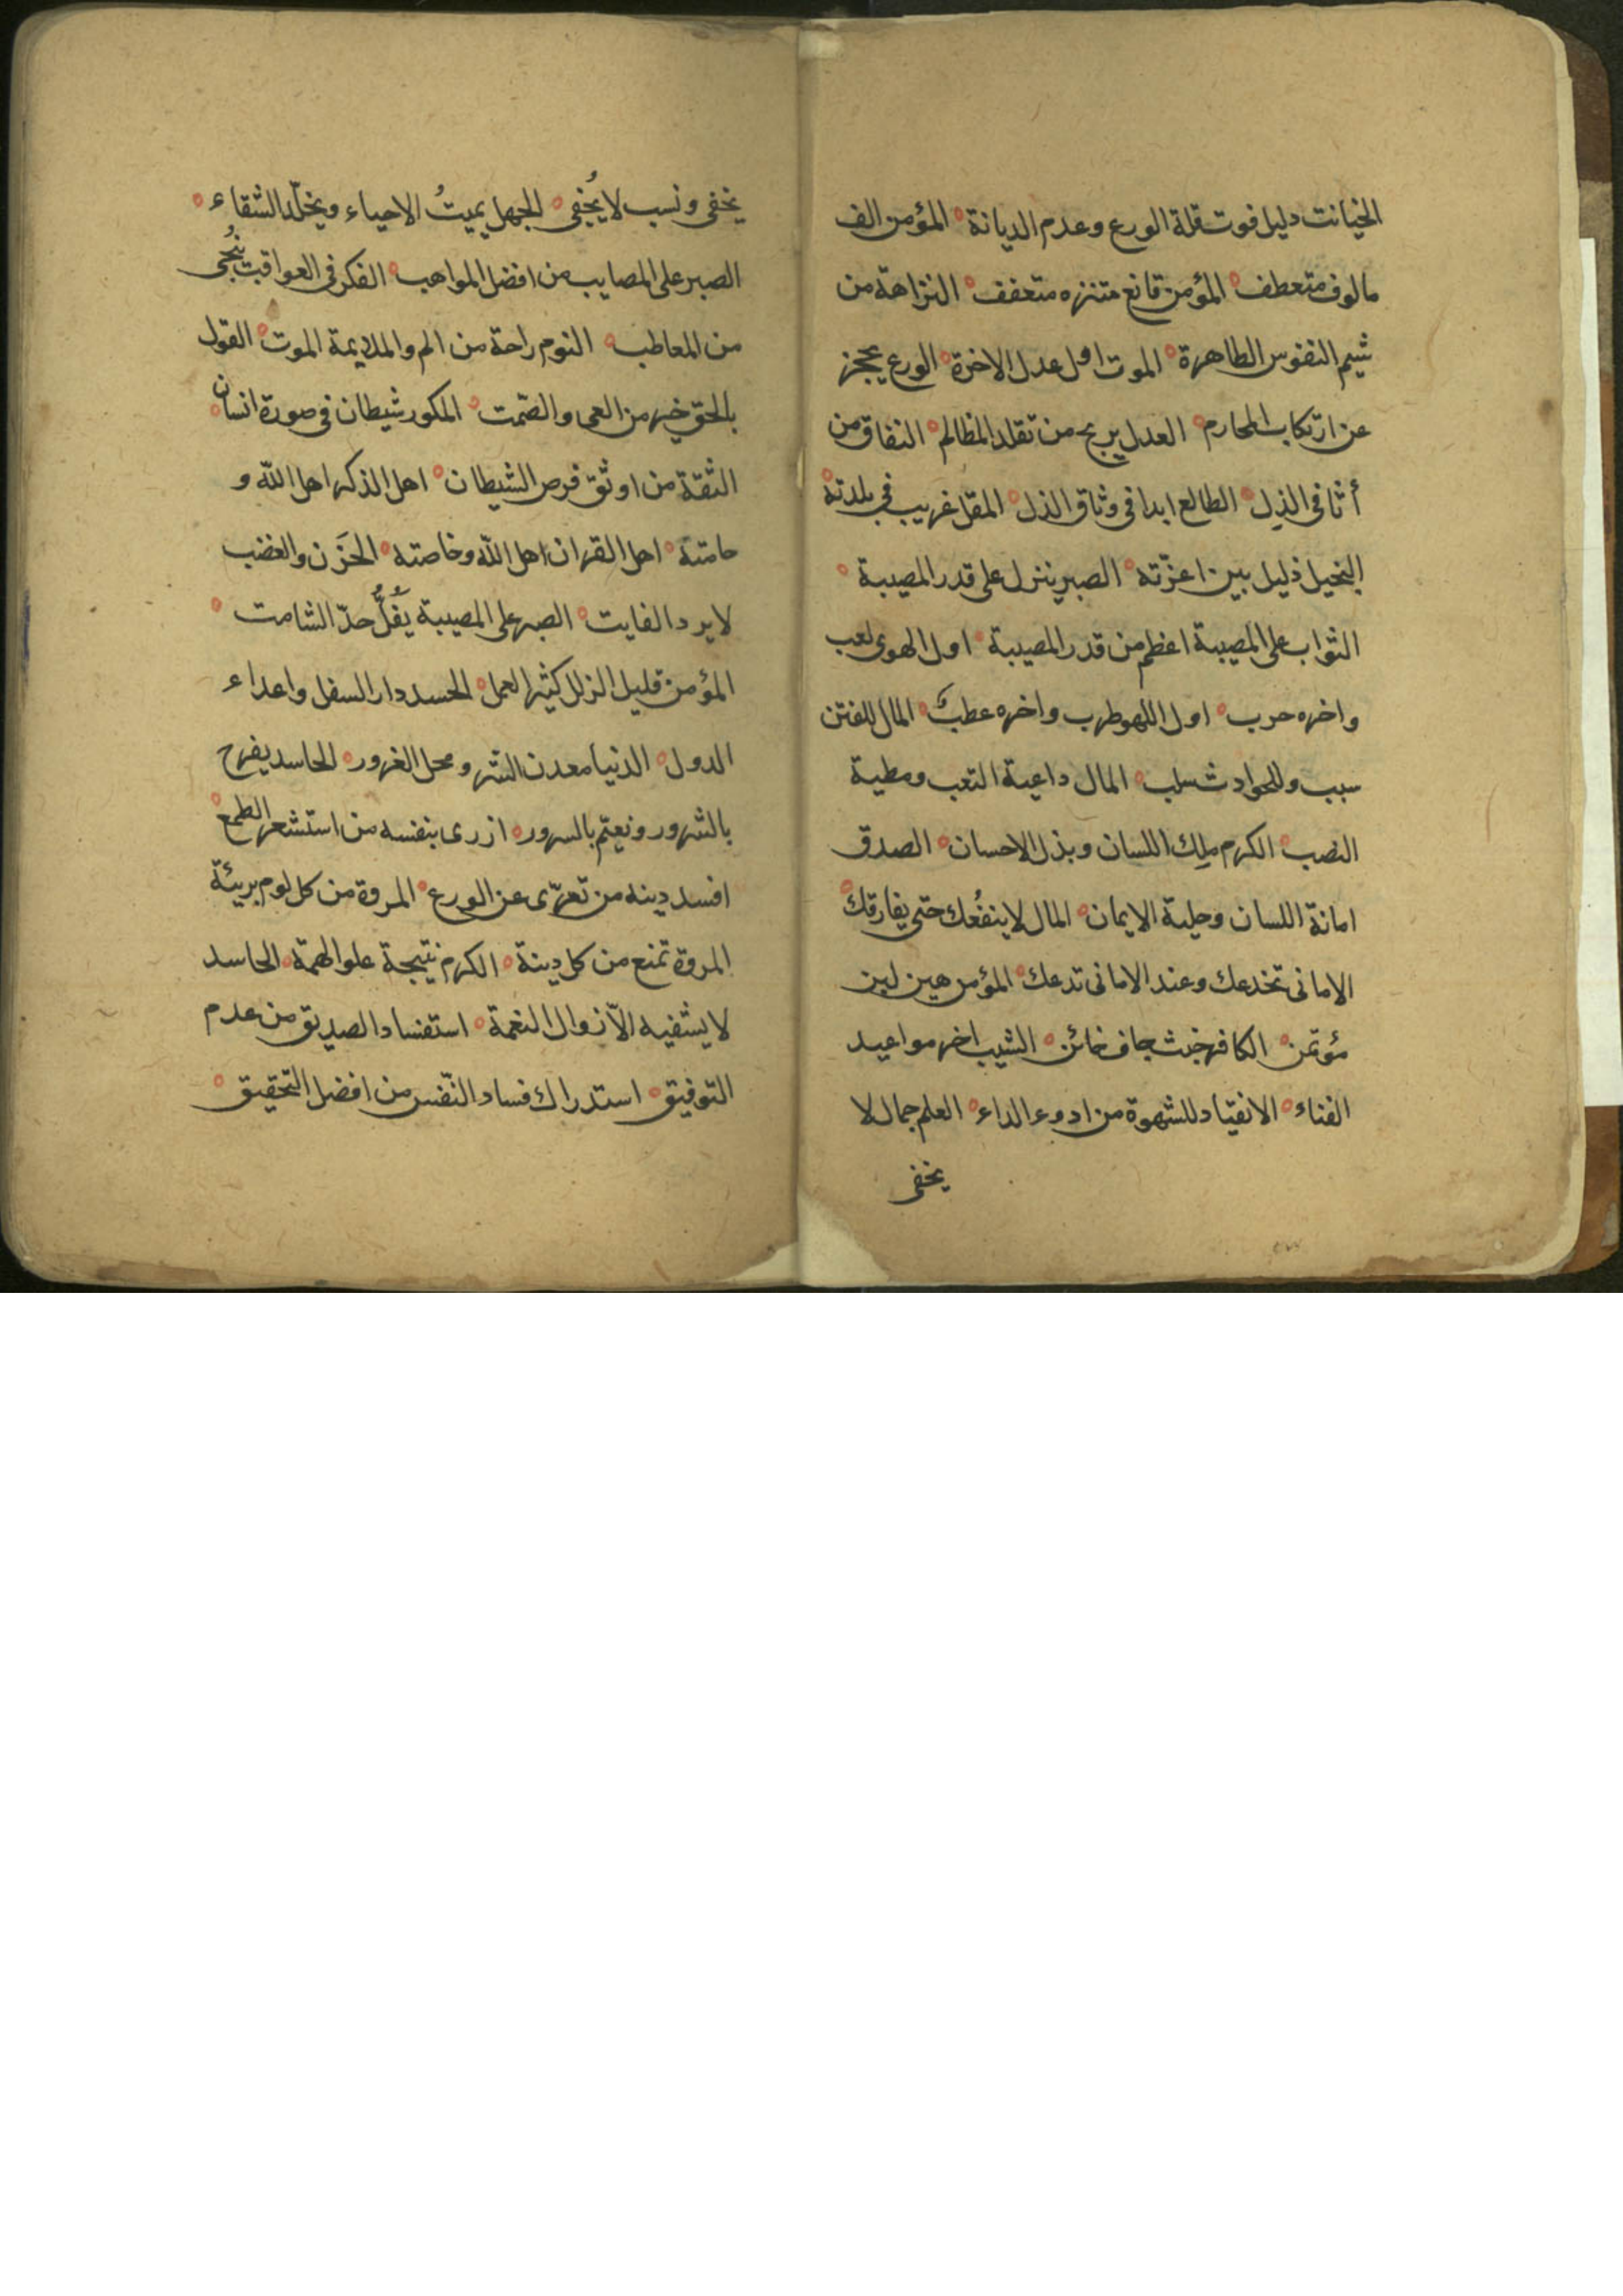 الخيانت دليل فوت قلة الورع وعدم الديانة ه المؤمن الف
مالوف متعطف ه المؤمن قانع متنزه متعفف ه النزاهة من
شيم النفوس الطاهرة ه الموت اول عدل الاخرة ه الورع يحجز
عن ارتكاب المحارم ه العدل يريح من تقلد المظالم ه النفاق من
أثافى الذل ه الطالع ابدا فى وثاق الذل ه المقل غريب فى بلدته ه
البخيل ذليل بين اعزته ه الصبر ينزل على قدر المصيبة ه
الثواب على المصيبة اعظم من قدر المصيبة ه اول الهوى لعب
واخره حرب ه اول اللهو طرب واخره عطب ه المال للفتن
سبب وللحوادث سلب ه المال داعية التعب ومطية
النصب ه الكرم ملك اللسان وبذل الاحسان ه الصدق
امانة اللسان وحلية الايمان ه المال لا ينفعُك حتى يفارقك ه
الامانى تخدعك وعند الامانى تدعك ه المؤمن هين لين
مؤتمن ه الكافر خبث جاف خائن ه الشيب اخر مواعيد
الفناء ه الانقياد للشهوة من ادوء الداء ه العلم جمال لا
يخفى
يخفى ونسب لا يُخفى ه الجهل يميتُ الاحياء ويخلّد الشقاء ه
الصبر على المصايب من افضل المواهب ه الفكر فى العواقب يُنجى
من المعاطب ه النوم راحة من الم والملايمة الموت ه القول
بالحق خير من العى والصّمت ه المكور شيطان فى صورة انسان ه
الثقة من اوثق فرص الشيطان ه اهل الذكر اهل الله و
حامته ه اهل القران اهل الله وخاصته ه الحَزن والغضب
لا يرد الفايت ه الصبر على المصيبة يَفُلُّ حدّ الشامت ه
المؤمن قليل الزلل كثير العمل ه الحسد دار السفل واعداء
الدول ه الدنيا معدن الشر ومحل الغرور ه الحاسد يفرح
بالشرور ونعتم بالسرور ه ازرى بنفسه من استشعر الطمع ه
افسد دينه من تعرّى عن الورع ه المروة من كل لوم بريئة
المروة تمنع من كل دينة ه الكرم نتيجة علو الهمة ه الحاسد
لا يشفيه الّا زوال النعمة ه استفساد الصديق من عدم
التوفيق ه استدراك فساد النّفس من افضل التحقيق ه